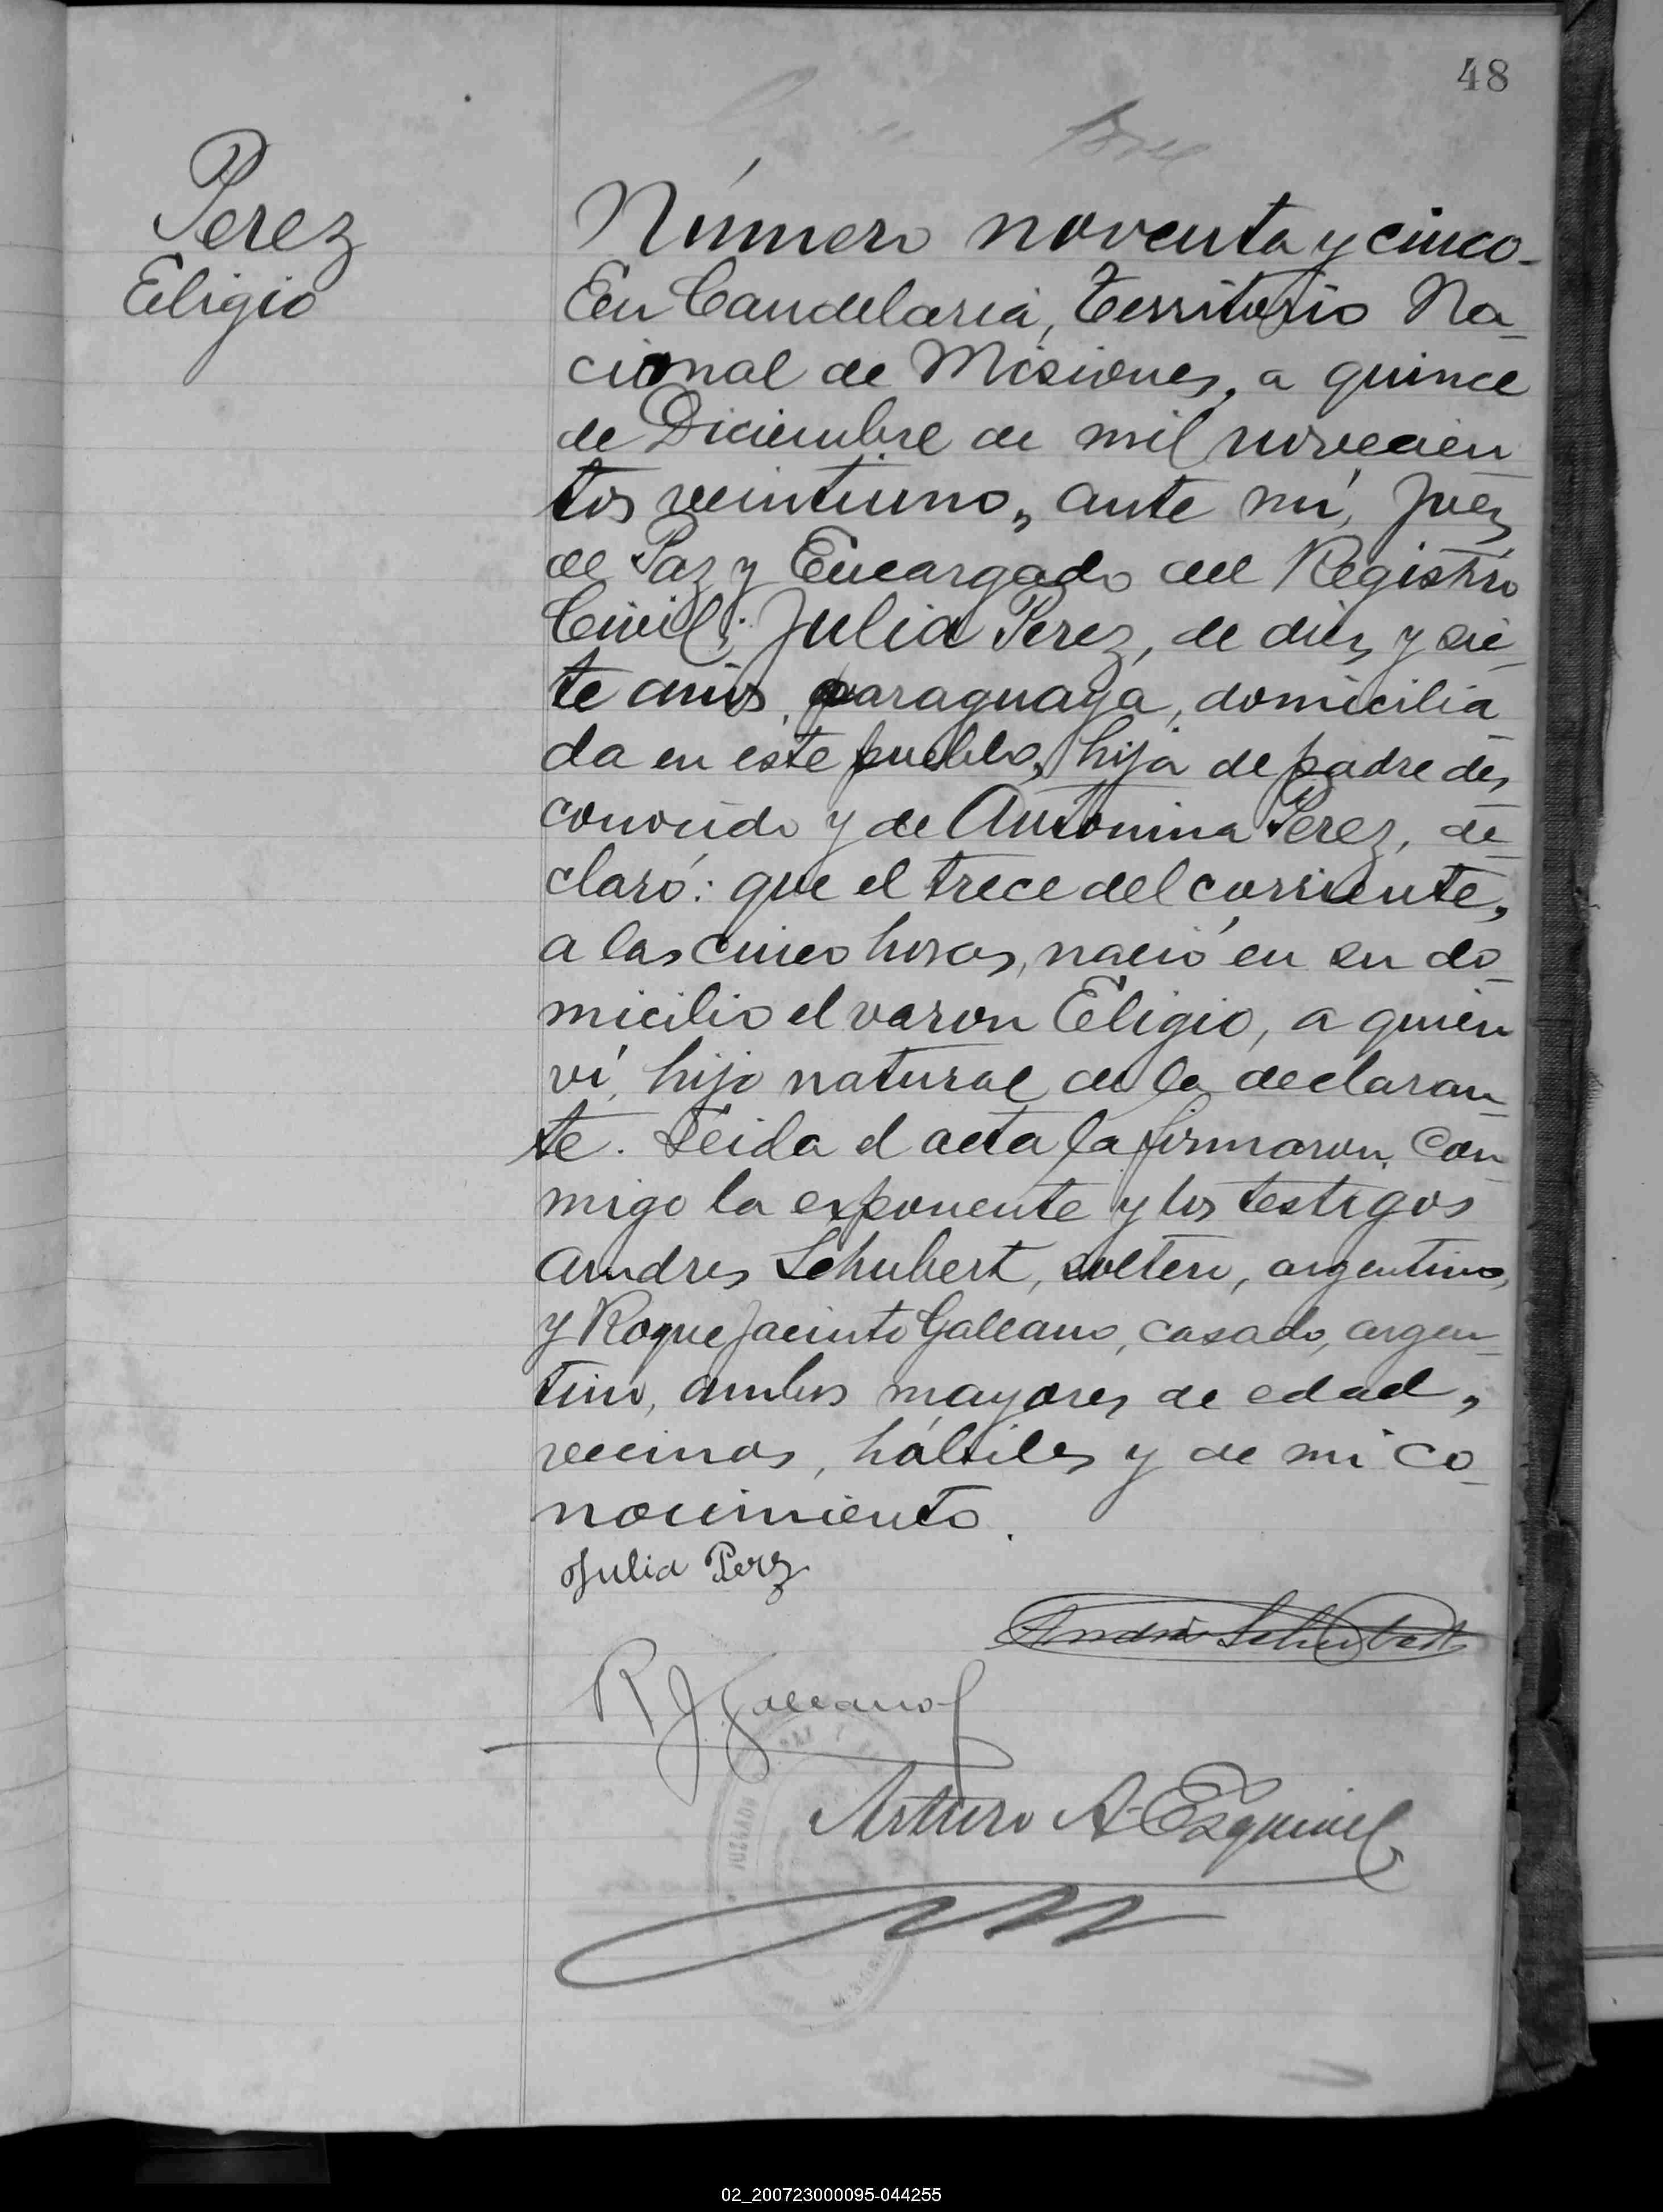 48
Perez
Eligio
Número noventa y cinco-
En Candelaria, Territorio Na-
cional de Misiones, a quince
de Diciembre de mil novecien
tos veintiuno, ante mí, Juez
de Paz y Encargado del Registro
Civil; Julia Perez, de diez y sie-
te años, paraguaya, domicilia-
da en este pueblo, hija de padre des-
conocido y de Antonina Perez, de-
claró: que el trece del corriente,
a las cinco horas, nació en su do-
micilio el varon Eligio, a quien
ví, hijo natural de la declaran-
te. Leida el acta la firmaron con-
migo la exponente y los testigos
Andres Schubert, soltero, argentino,
y Roque Jacinto Galeano, casado, argen-
tino, ambos mayores de edad,
vecinos, hábiles y de mi co-
nocimiento.
Julia Perz
Andrés Schubert
R J Galeano
Arturo A. Esquivel
JUZGADO
02_200723000095-044255